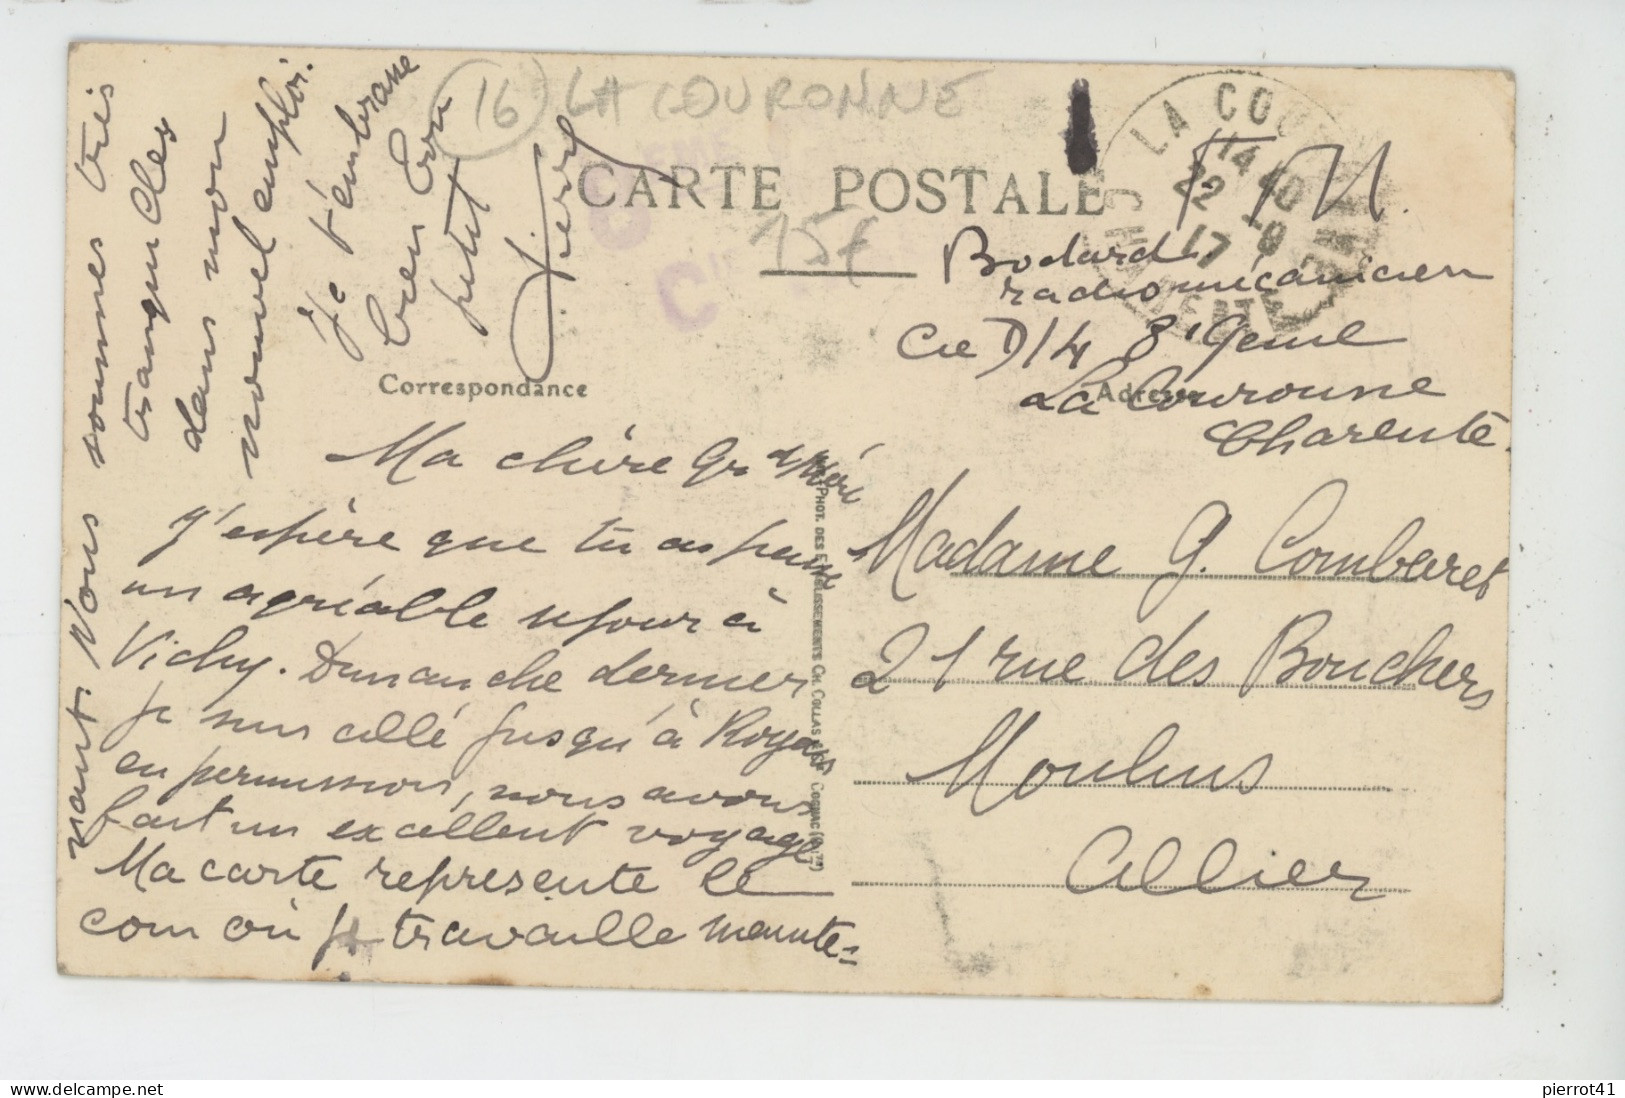 (16) LA COURONNE
CARTE POSTALE
15f
F M.
LA COU
14 40
22 -9
17
Bodard
radiomécanicien
Cie D14 8e Génie
La Couronne
Charente
Correspondance
Adresse
Ma chère Grd Mère
J'espère que tu as passé
un agréable séjour à
Vichy. Dimanche dernier
je suis allé jusqu'à Royan
en permission, nous avons
fait un excellent voyage
Ma carte représente le
coin où je travaille mainte=
nant. Nous sommes très
tranquilles
dans mon
nouvel emploi.
Je t'embrasse
bien bon
petit
Pierre
PHOT. DES ETABLISSEMENTS CH. COLLAS & Cie COGNAC
Madame G. Combaret
21 rue des Bouchers
Moulins
Allier
pierrot41